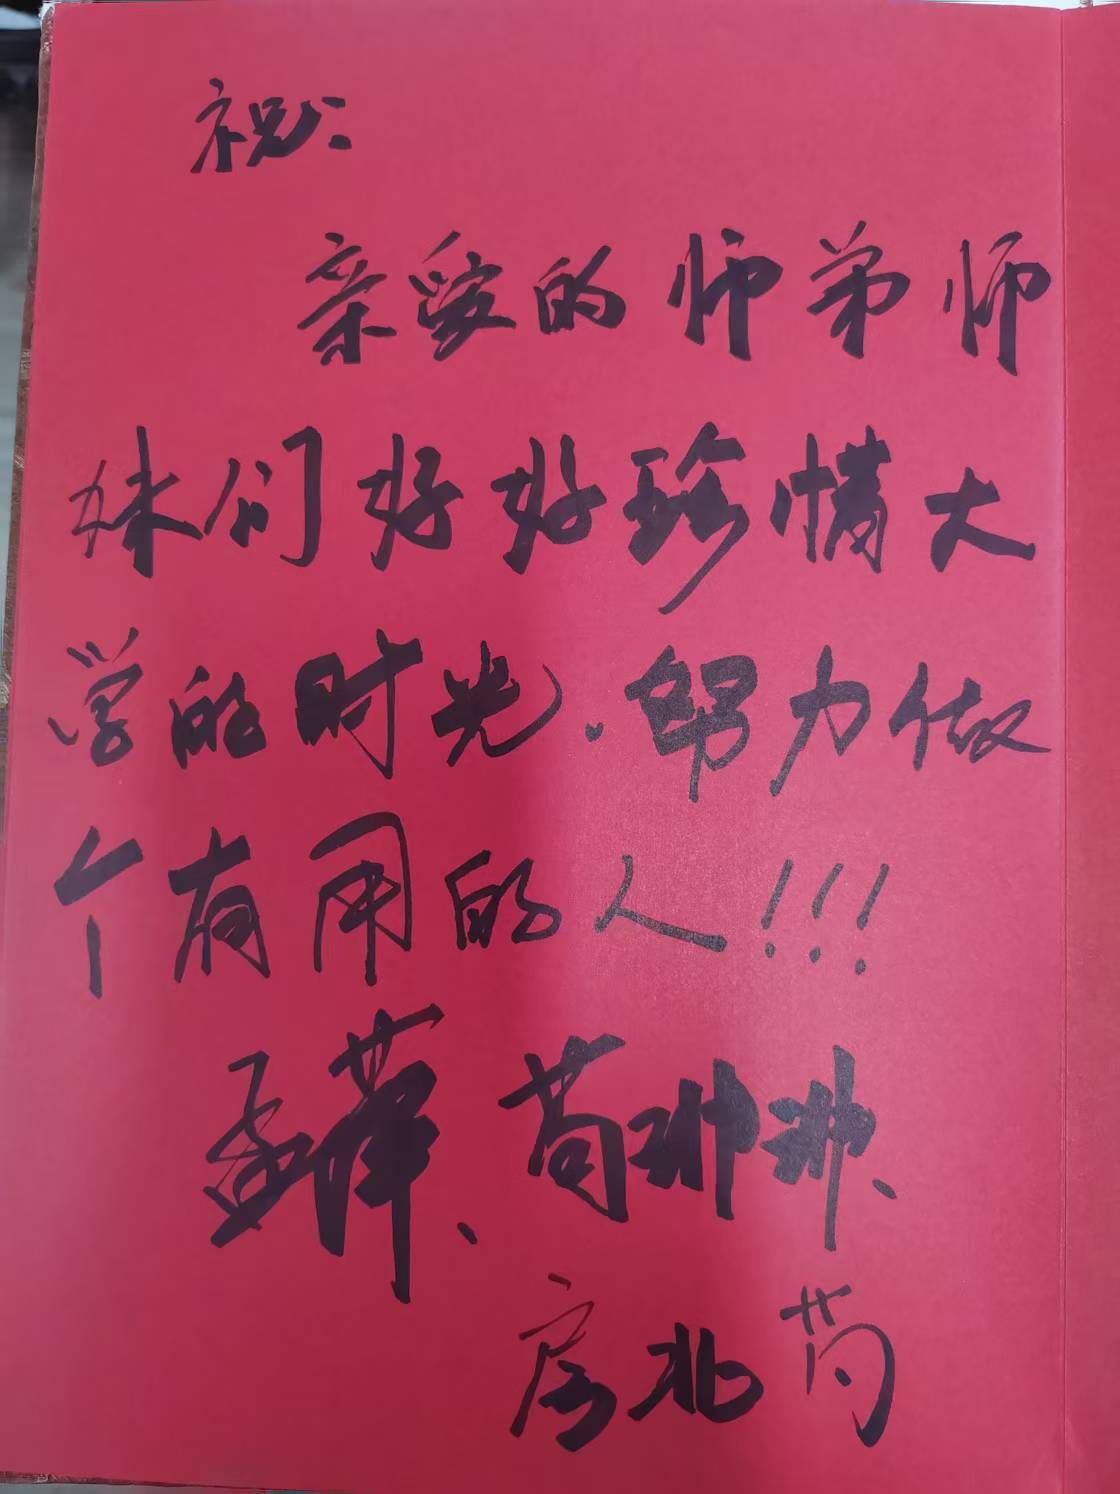 祝:
亲爱的师弟师
妹们好好珍惜大
学的时光.努力做
个有用的人!!!
孟苹、苟琳琳、
房北芍